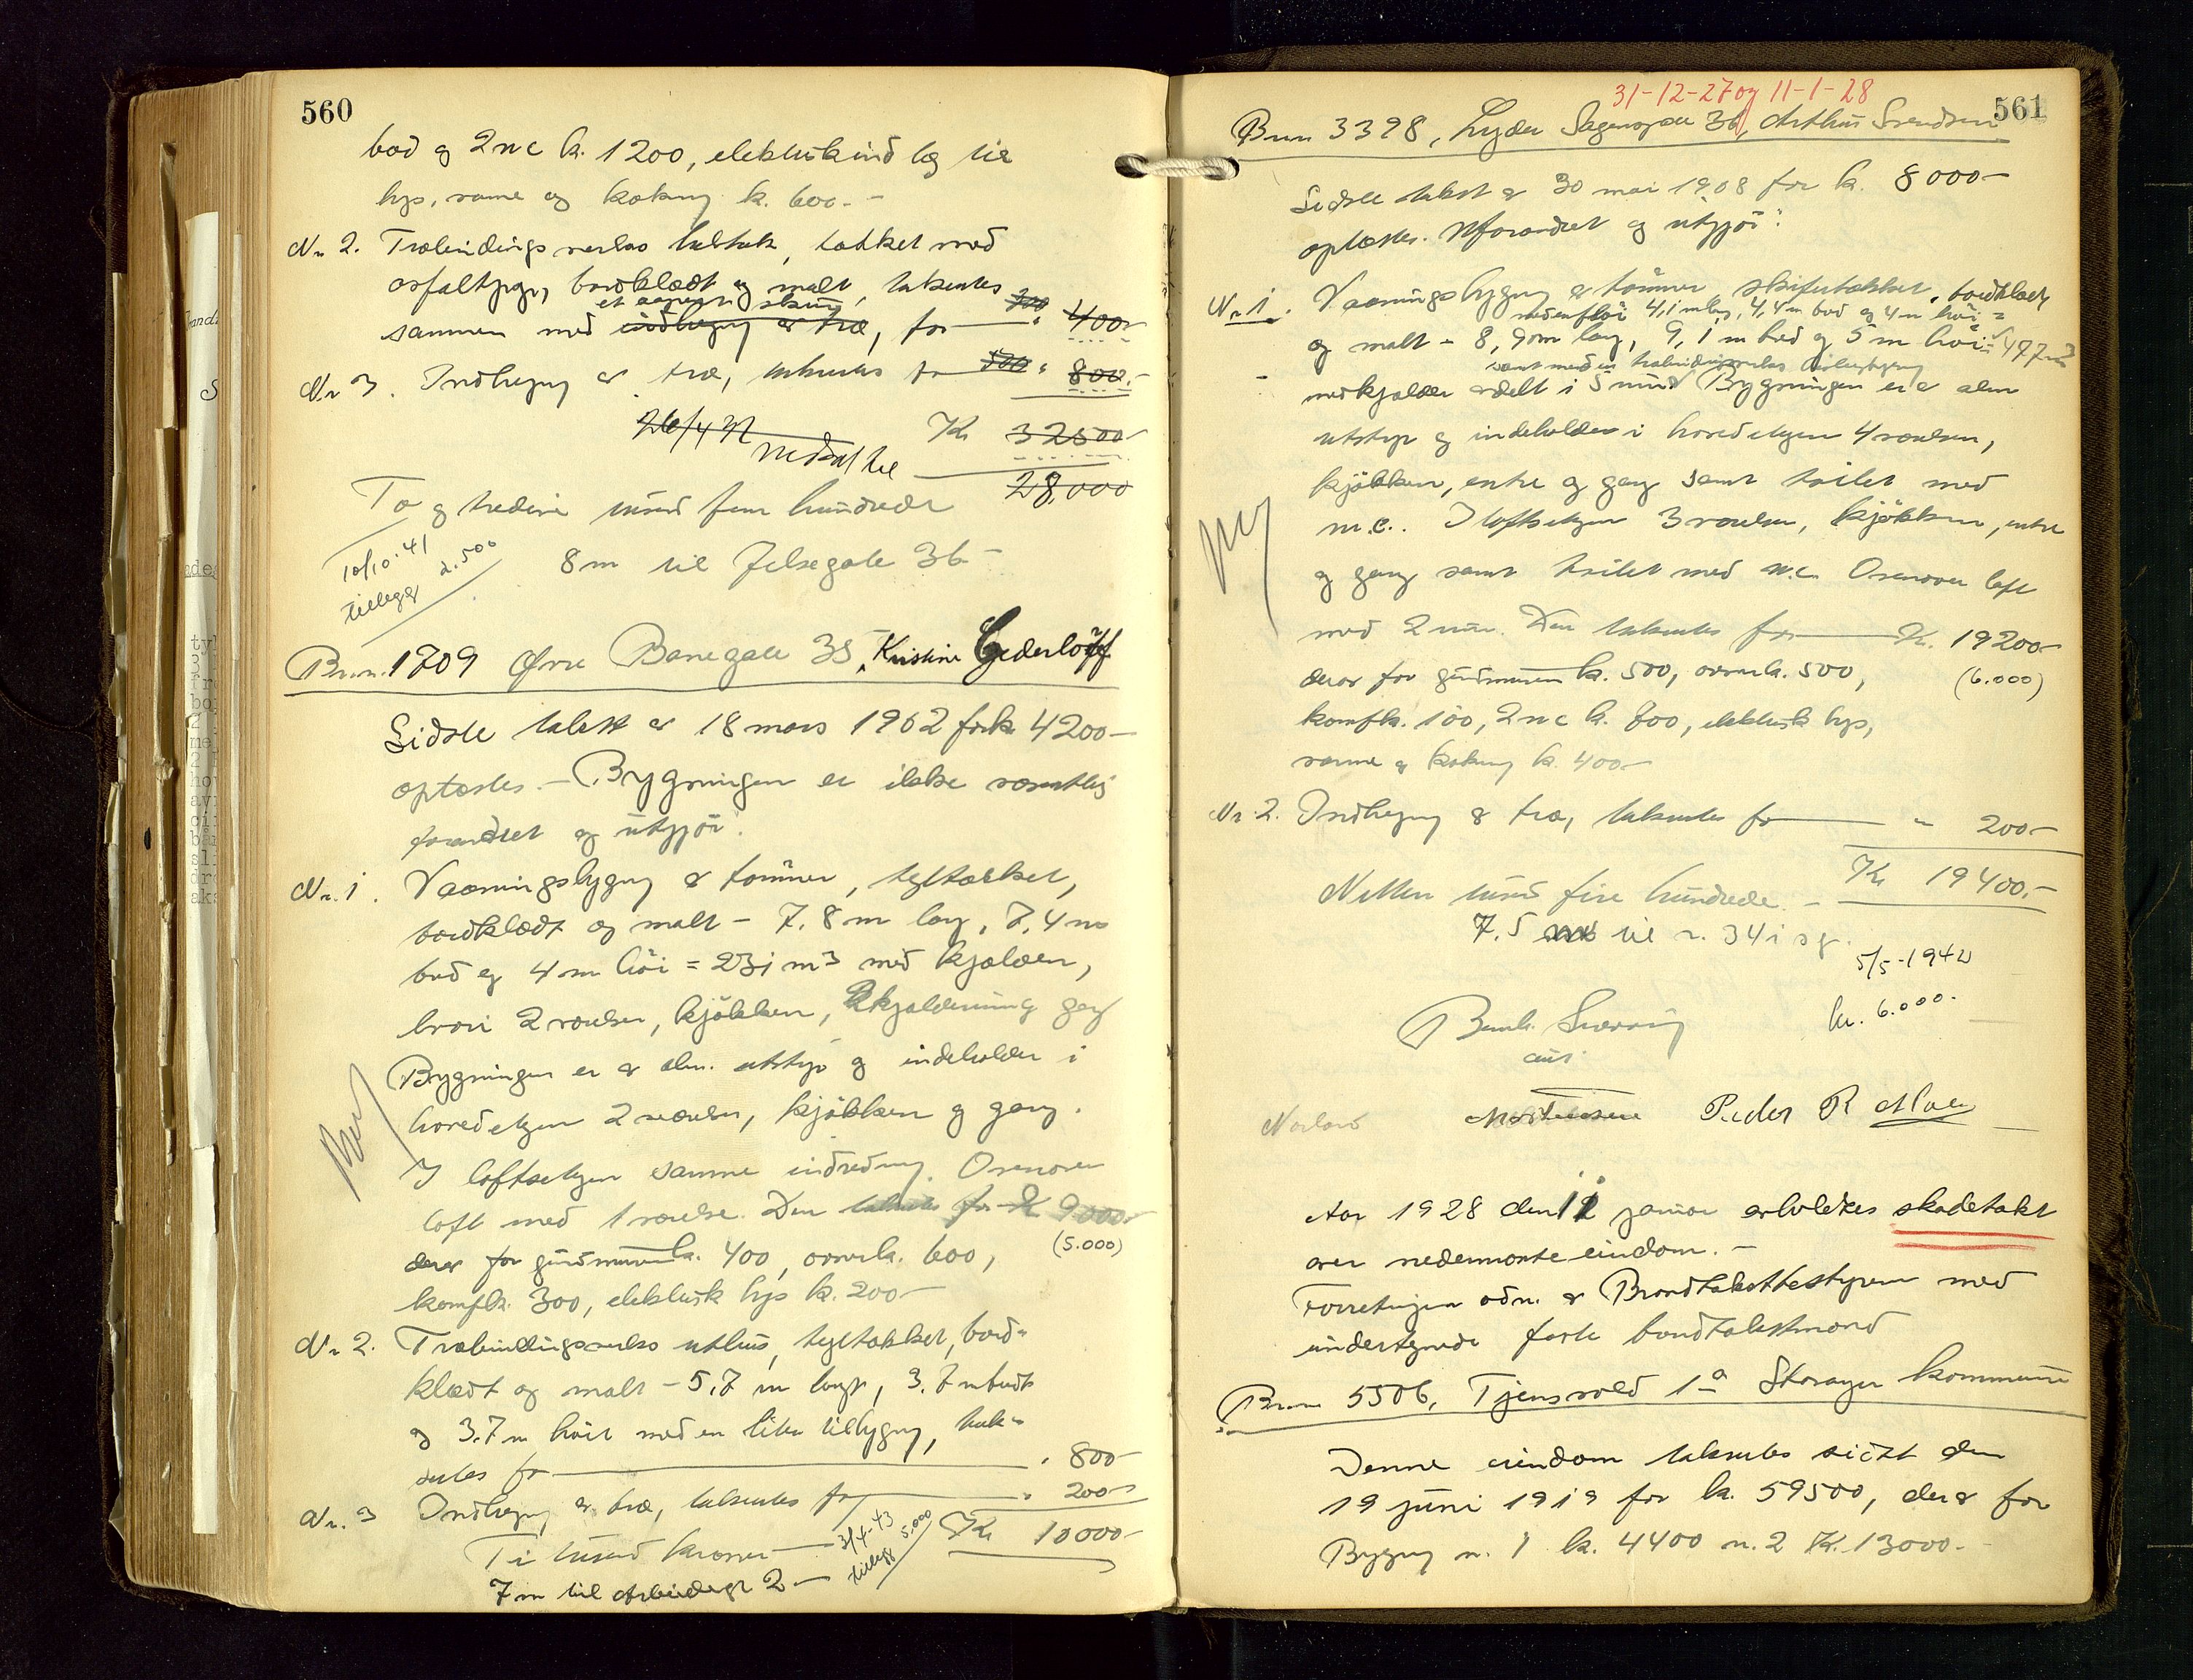 560
bod og 2 wc kr. 1200, elektrisk indlæg til
lys, varme og kokning kr. 600.-
Nr 2. Træbindingsverks takket med
asfaltpap, bordklædt og malt, takseres
et skur 300
sammen med indhegning av træ, for " 400-
Nr 3. Indhegning av træ, takseres for 500 " 800.-
26/4 Kr 32500-
nedsat til 28,000
To og tredive tusend fem hundrede
10/10-41
tillegg 2.500
8 m til Jelsegate 36-
Br.nr. 1709 Øvre Banegate 35, Kristine Cederlöff
Sidste takst av 18 mars 1902 for kr 4200-
optoges. - Bygningen er ikke væsentlig
forandret og utgjør:
Nr. 1. Vaaningsbygning av tømmer, tegltækket,
bordklædt og malt - 7.8 m lang, 7,4 m
bred og 4 m høi = 231 m3 med kjælder,
hvori 2 værelser, kjøkken, kjælderrum og gang
Bygningen er av alm. utstyr og indeholder i
hovedetagen 2 værelser, kjøkken og gang.
I loftsetagen samme indredning. Ovenover
loft med 1 værelse. Den takseres for Kr 9000.-
derav for grundmuren kr. 400, ovner kr. 600, (5.000)
komfkr. 300, elektrisk lys kr. 200-
Nr 2. Træbindingsverks uthus, tegltækket, bord-
klædt og malt - 5.7 m langt, 3.7 m bredt
og 3.7 m høit med en liten tilbygning, tak-
seres for " 800-
Nr. 3 Indhegning av træ, takseres for " 200-
Ti tusend kroner 3/4-43 Kr 10000-
tillegg 5.000
7 m til Arbeidergt 2-
31-12-27 og 11-1-28
561
Br.nr 3398, Lyder Sagensgate 36, Arthur Svendsen
Sidste takst av 30 mai 1908 for kr. 8000-
optoges. uforandret og utgjør:
Nr. 1. Vaaningsbygning av tømmer, skifertækket, bordklædt
4,1 m lang, 4,4 m bred og 4 m høi =
og malt - 8,9 m lang, 9,1 m bred og 5 m høi = 477 m3
samt med en træbindingsverks tilbygning
med kjælder avdelt i 5 rum. Bygningen er av alm
utstyr og indeholder i hovedetagen 4 værelser,
kjøkken, entre og gang samt toilet med
w.c. I loftsetagen 3 værelser, kjøkken, entre
og gang samt toilet med w.c. Ovenover loft
med 2 rum. Den takseres for Kr. 19200-
derav for grundmuren kr. 500, ovner kr. 500, (6.000)
komfkr. 100, 2 wc kr. 800, elektrisk lys,
varme og kokning kr. 400-
Nr. 2. Indhegning av træ, takseres for " 200-
Kr 19400.-
Nitten tusend fire hundrede.-
7,5 m til nr. 34 i s g.
5/5-1942
kr. 6.000.-
Peder R
Aar 1928 den 11 januar avholdtes skadetakst
over nedennævnte eiendom.-
Forretningen adm. av Brandtakstbestyreren med
undertegnede faste brandtakstmænd
Br.nr 5506, Tjensvold 1a Stavanger kommune
Denne eiendom takseres sidst den
19 juni 1919 for kr. 59500, derav for
Bygning nr. 1 kr. 4400 nr. 2 Kr. 13000.-